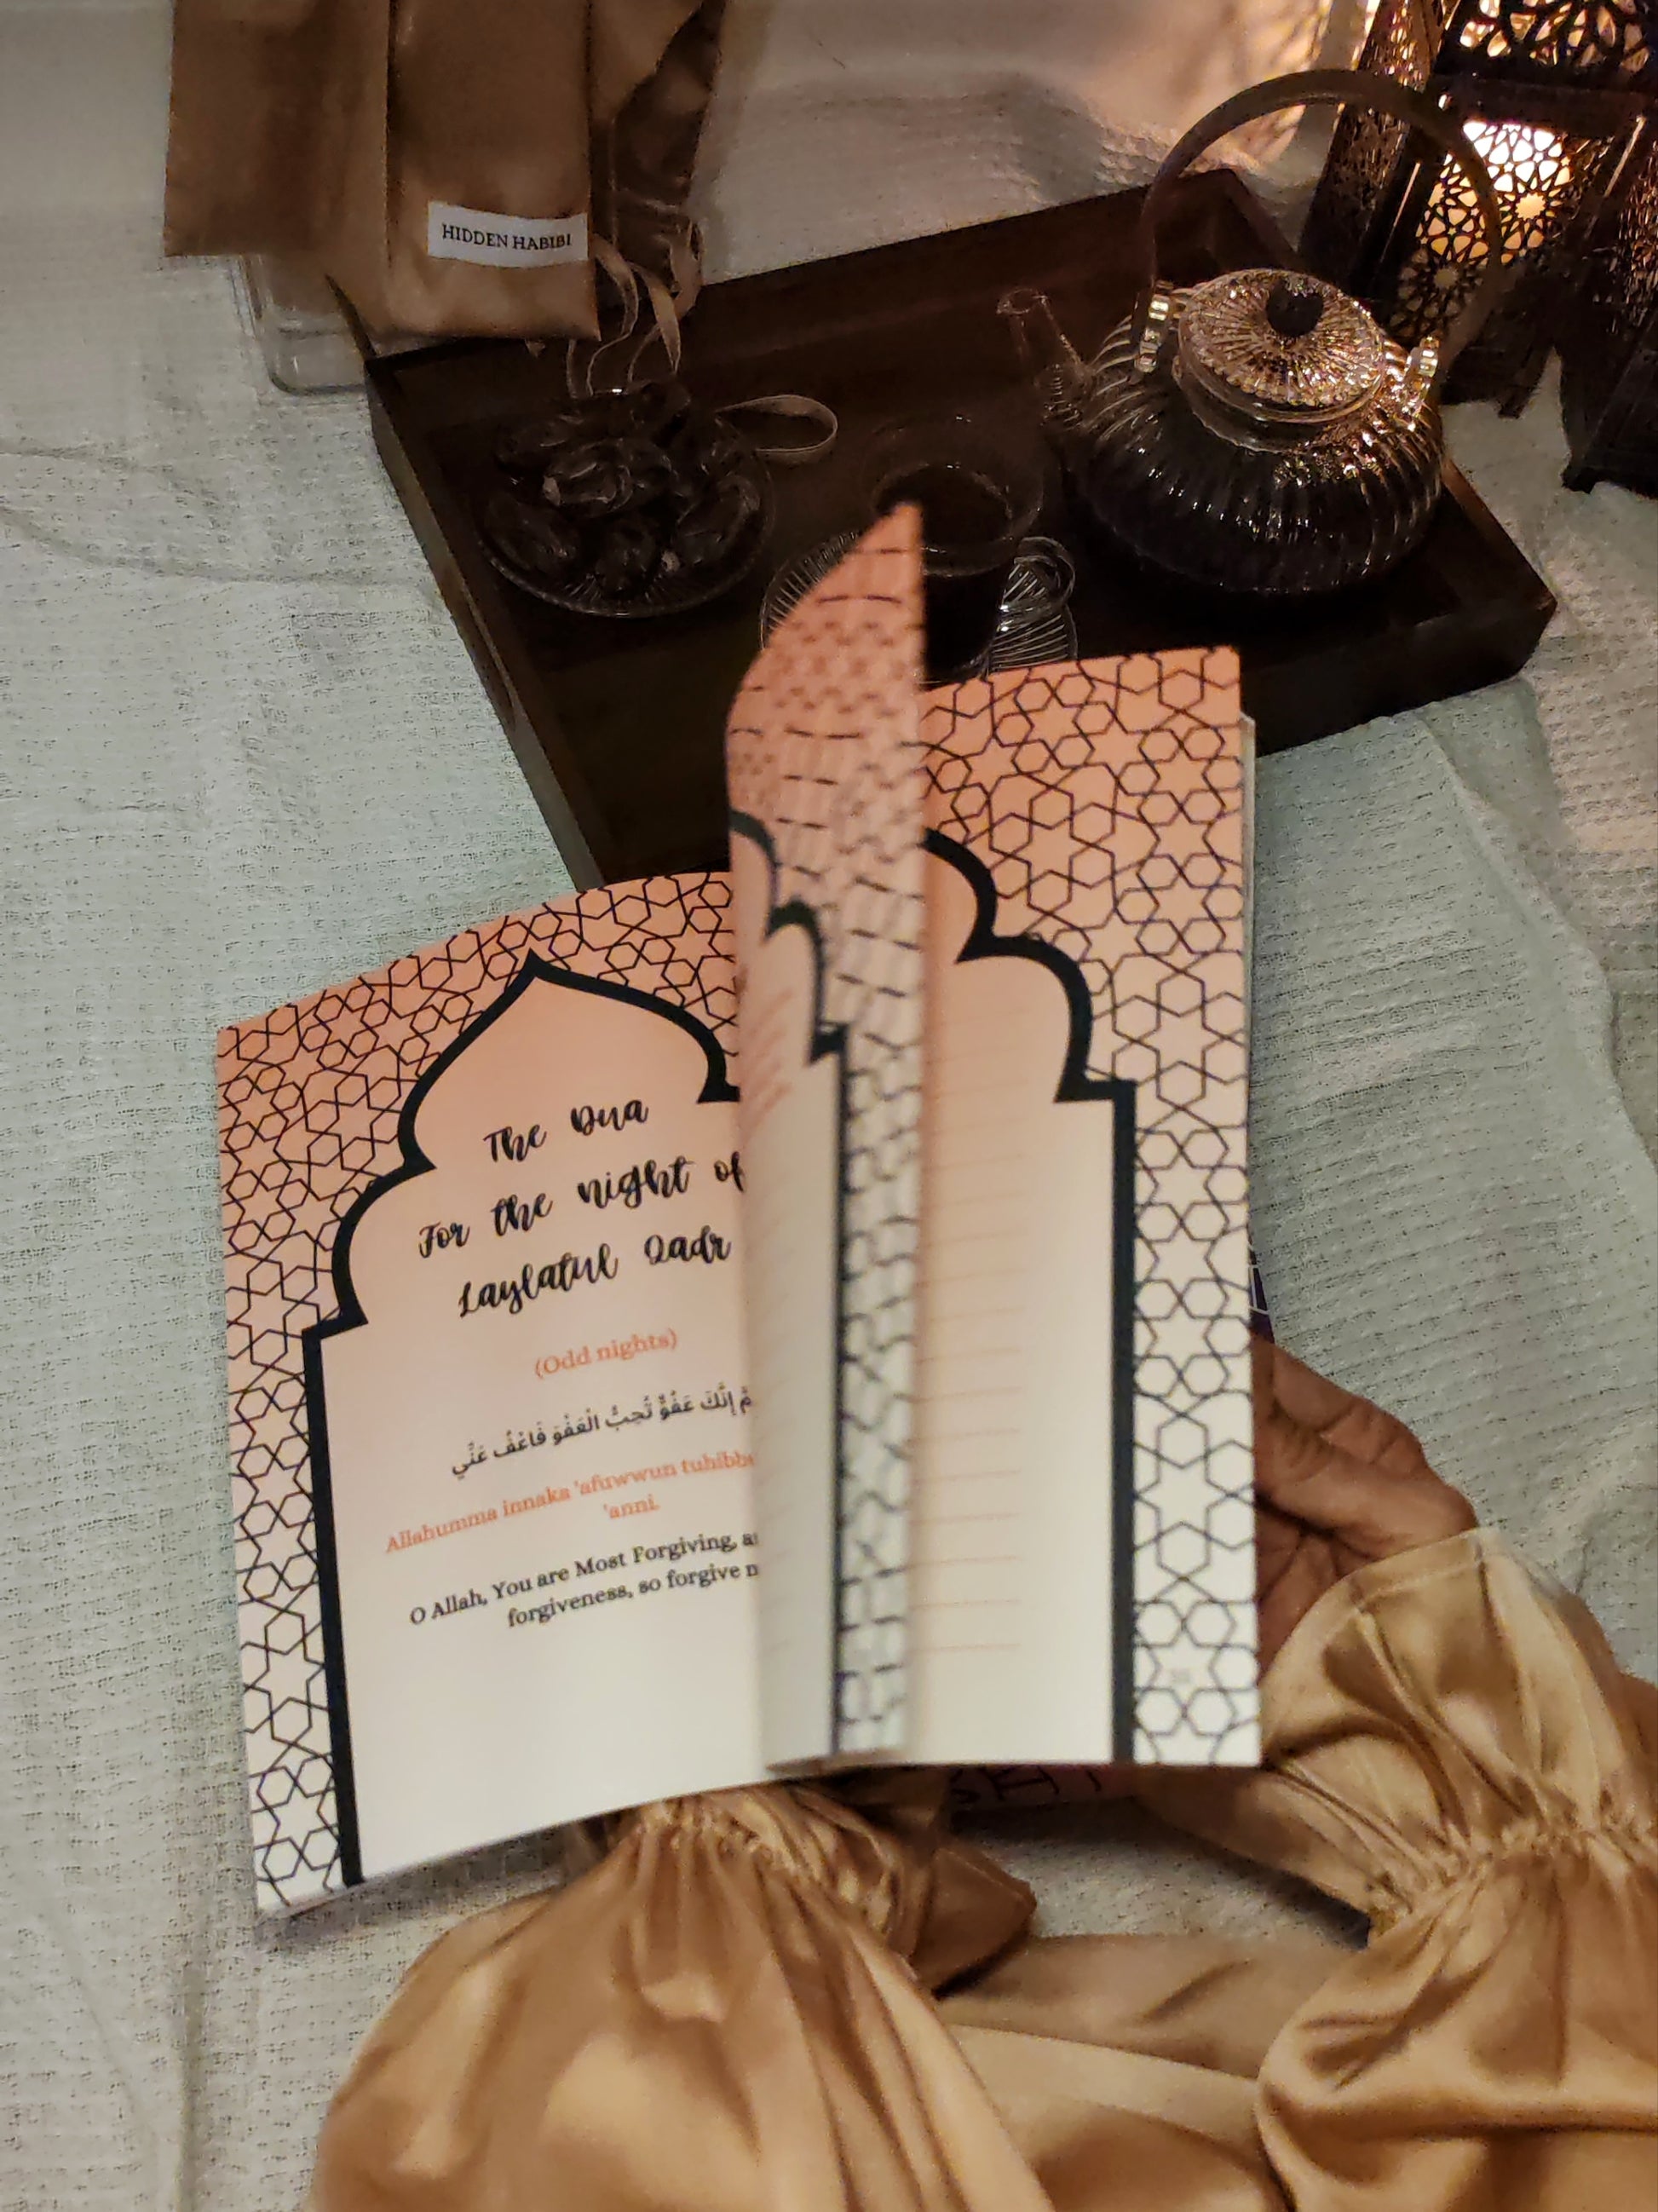 HIDDEN HABIBI
The Dua
For the night of
Laylatul Qadr
(Odd nights)
إِنَّكَ عَفُوٌّ تُحِبُّ الْعَفْوَ فَاعْفُ عَنِّي
Allahumma innaka 'afuwwun tuhibb
'anni.
O Allah, You are Most Forgiving,
forgiveness, so forgive